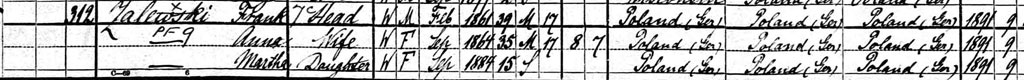 312 Zalewski Frank 7 Head W M Feb 1861 39 M 17 Poland (Ger) Poland (Ger) Poland (Ger) 1891 9
PF9 Anna Wife W F Sep 1864 35 M 17 8 7 Poland (Ger) Poland (Ger) Poland (Ger) 1891 9
Martha Daughter W F Sep 1884 15 S Poland (Ger) Poland (Ger) Poland (Ger) 1891 9